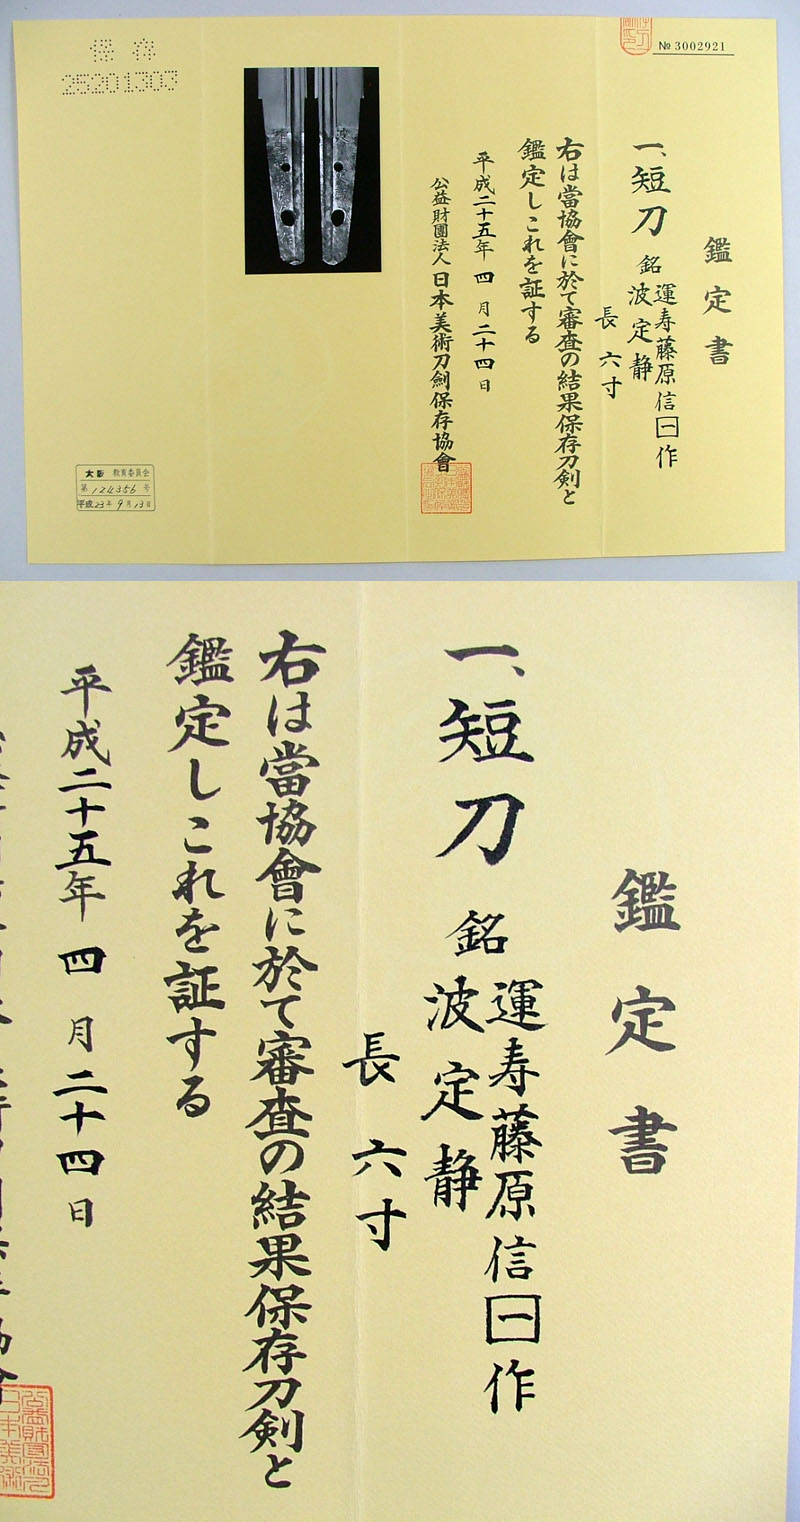 № 3002921
鑑定書
一、短刀 銘 運寿藤原信一作
波定静
長 六寸
右は當協會に於て審査の結果保存刀剣と
鑑定しこれを証する
平成二十五年 四 月 二十四 日
公益財團法人 日本美術刀劍保存協會
保存
25201303
大阪 教育委員会
第 124356 号
平成23年9月13日
鑑定書
一、短刀 銘 運寿藤原信一作
波定静
長 六寸
右は當協會に於て審査の結果保存刀剣と
鑑定しこれを証する
平成二十五年 四 月 二十四 日